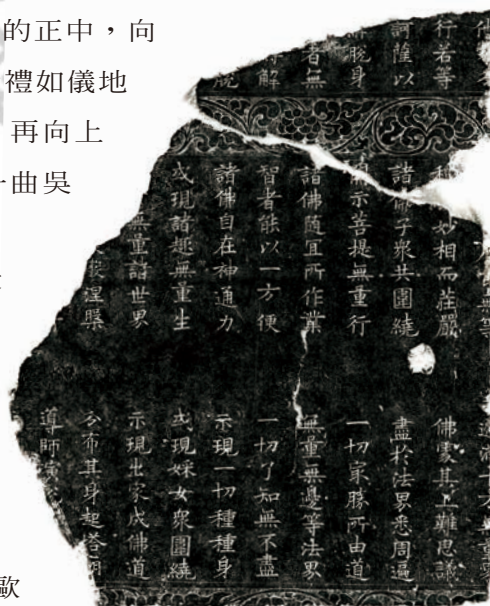 的正中，向
禮如儀地
再向上
曲吳
歐
行若等
訶薩以
脫身
者無
解
無等
妙相而莊嚴
諸佛子眾共圍繞
示菩提無重行
諸佛隨宜所作業
智者能以一方便
諸佛自在神通力
或現諸趣無量生
無量諸世界
涅槃
佛處其上難思議
盡於法界悉周遍
一切㝡勝所由道
無量無邊等法界
一切了知無不盡
示現一切種種身
或現婇女眾圍繞
示現出家成佛道
分布其身起塔
導師